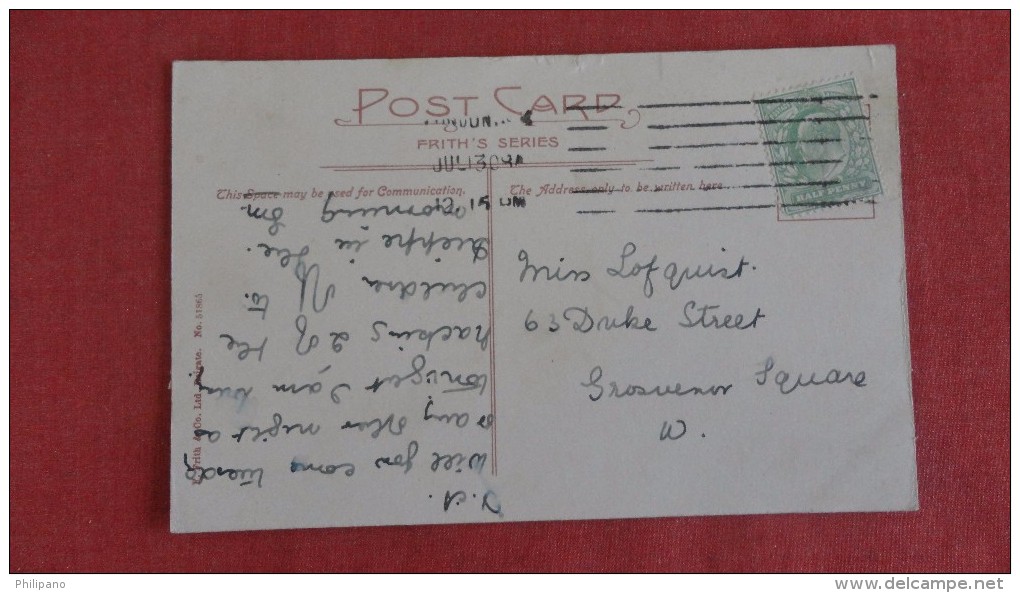 POST CARD
FRITH'S SERIES
JUL 13 08
12 15
This Space may be used for Communication.
The Address only to be written here
HALFPENNY
Miss Lofquist.
63 Duke Street
Grosvenor Square
W.
Will you come Tuesday
or any other night as
tonight I am busy
packing 2 of the
children
Dieppe in the
morning
Frith & Co. Ltd., Reigate. No. 51865
Philipano
www.delcampe.net